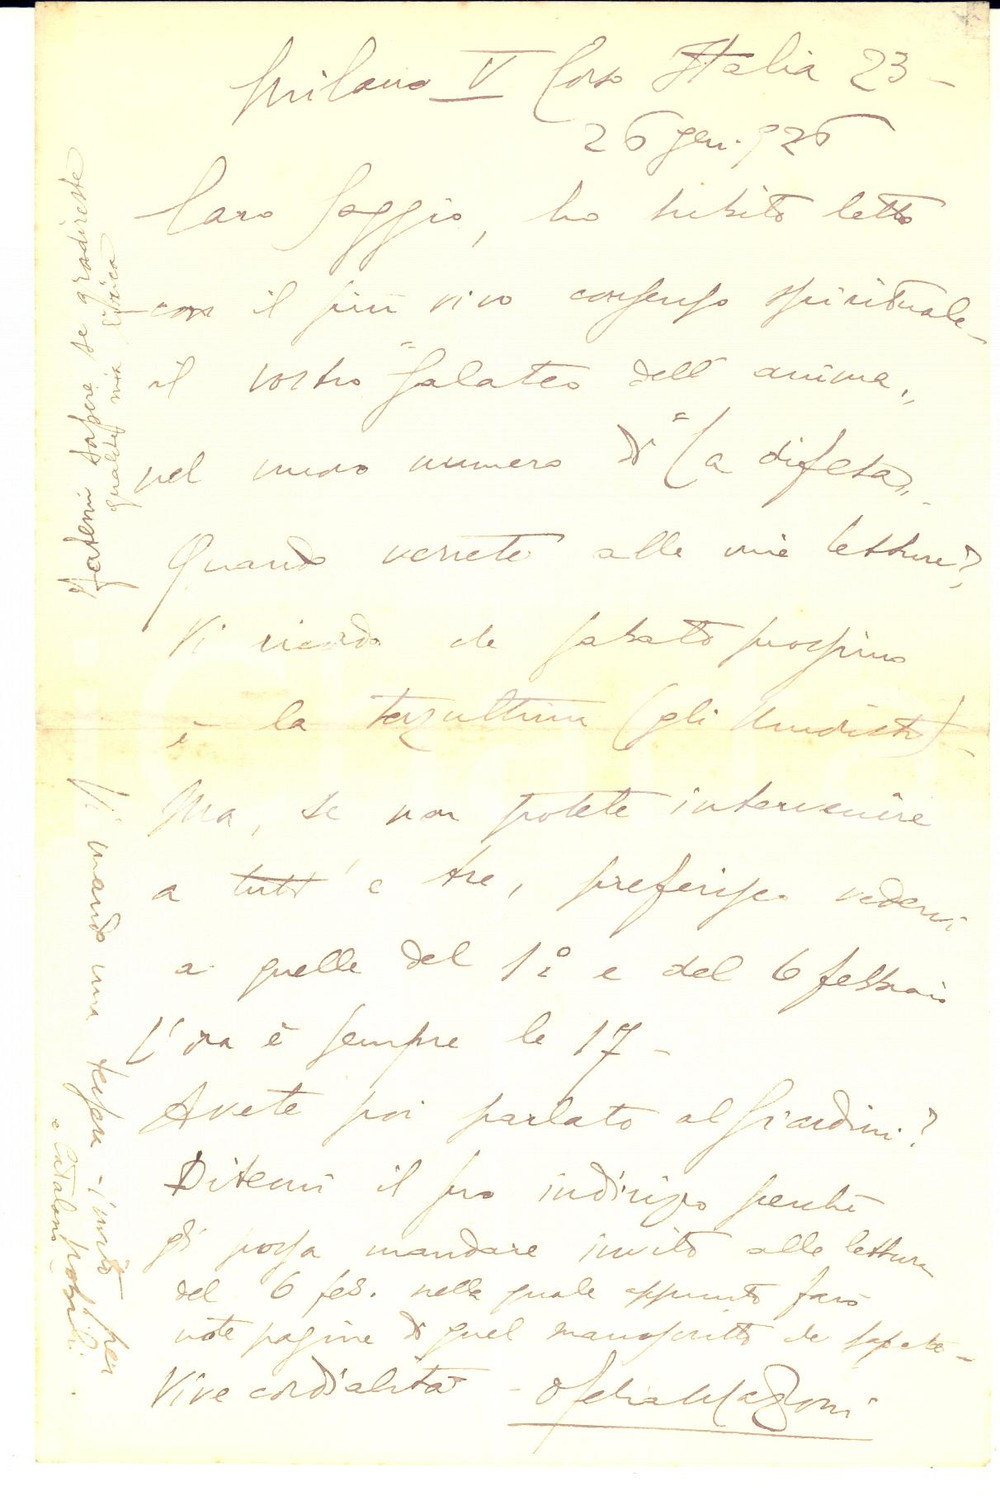 Milano V Corso Italia 23 -
26 gen. 926
Caro Saggio, ho subito letto
con il più vivo consenso spirituale
il vostro "Galateo dell'anima"
nel nuovo numero di "La difesa".
Quando verrete alle mie letture?
Vi ricordo che sabato prossimo
è la terzultima (gli Umoristi).
Ma, se non potete intervenire
a tutt'e tre, preferisco vedervi
a quelle del 1º e del 6 febbraio
L'ora è sempre le 17 -
Avete poi parlato al Giardini?
Ditemi il suo indirizzo perché
gli possa mandare invito alla lettura
del 6 feb. nella quale appunto farò
note pagine di quel manoscritto che sapete -
Vive cordialità - Ofelia Mazzoni
Fatemi sapere se gradireste
qualche mia lirica
Vi mando una tessera - invito per
e Catalani